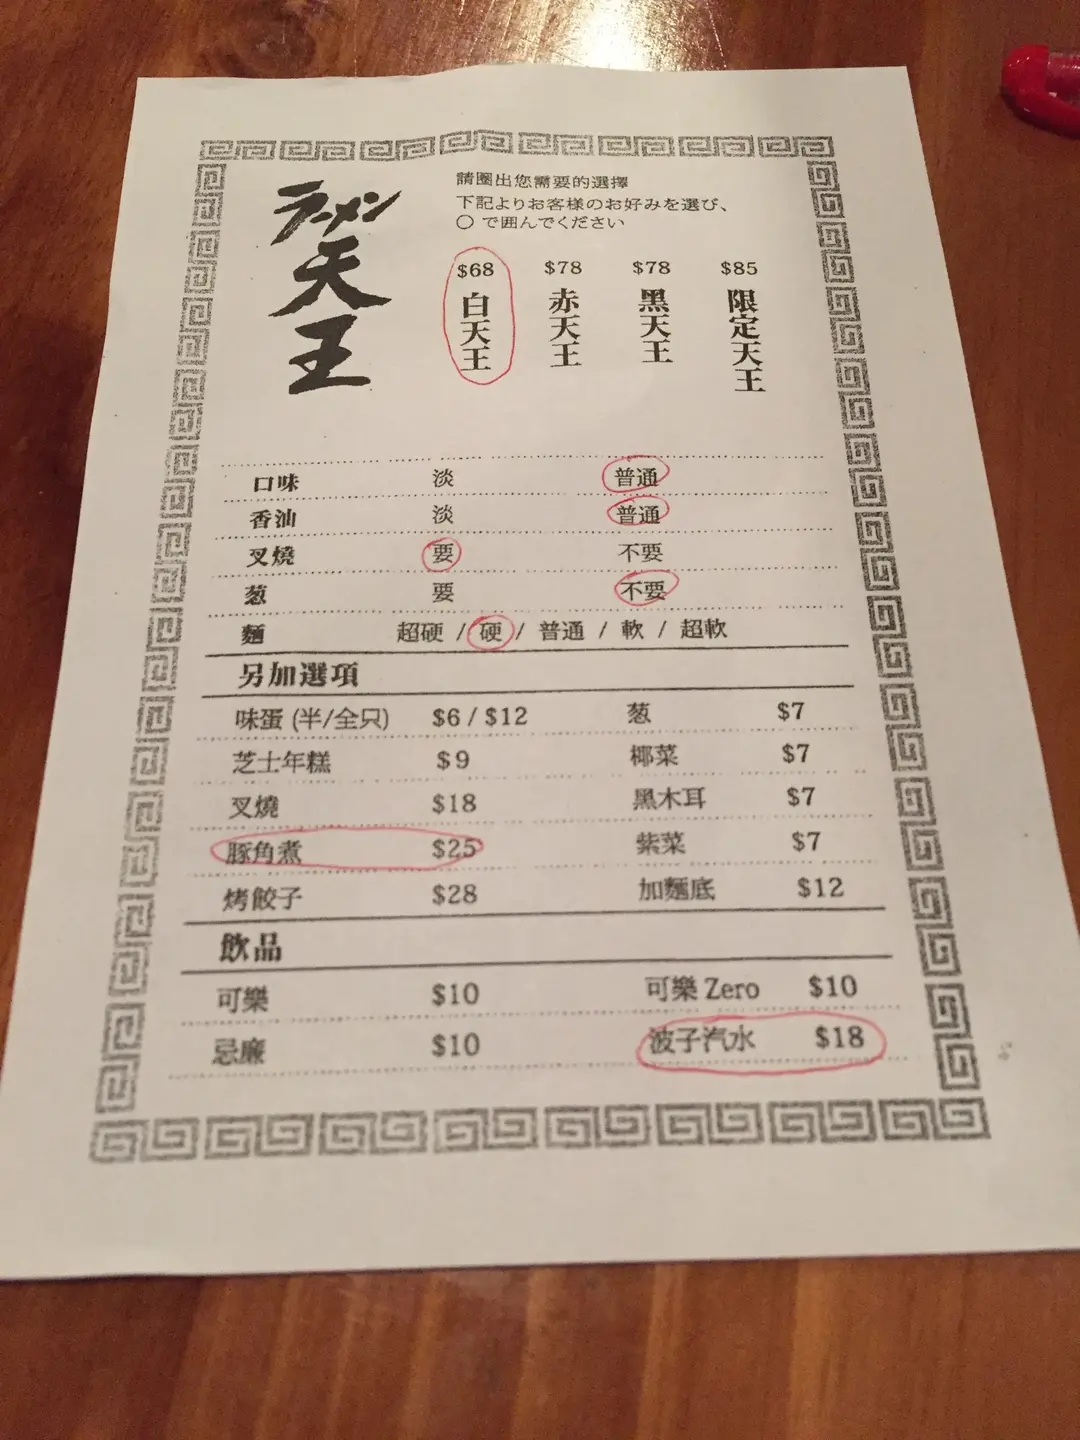 ラーメン
天王
請圈出您需要的選擇
下記よりお客様のお好みを選び、
〇で囲んでください
$68 $78 $78 $85
白天王 赤天王 黑天王 限定天王
口味 淡 普通
香油 淡 普通
叉燒 要 不要
葱 要 不要
麵 超硬 / 硬 / 普通 / 軟 / 超軟
另加選項
味蛋 (半/全只) $6 / $12 葱 $7
芝士年糕 $9 椰菜 $7
叉燒 $18 黑木耳 $7
豚角煮 $25 紫菜 $7
烤餃子 $28 加麵底 $12
飲品
可樂 $10 可樂 Zero $10
忌廉 $10 波子汽水 $18